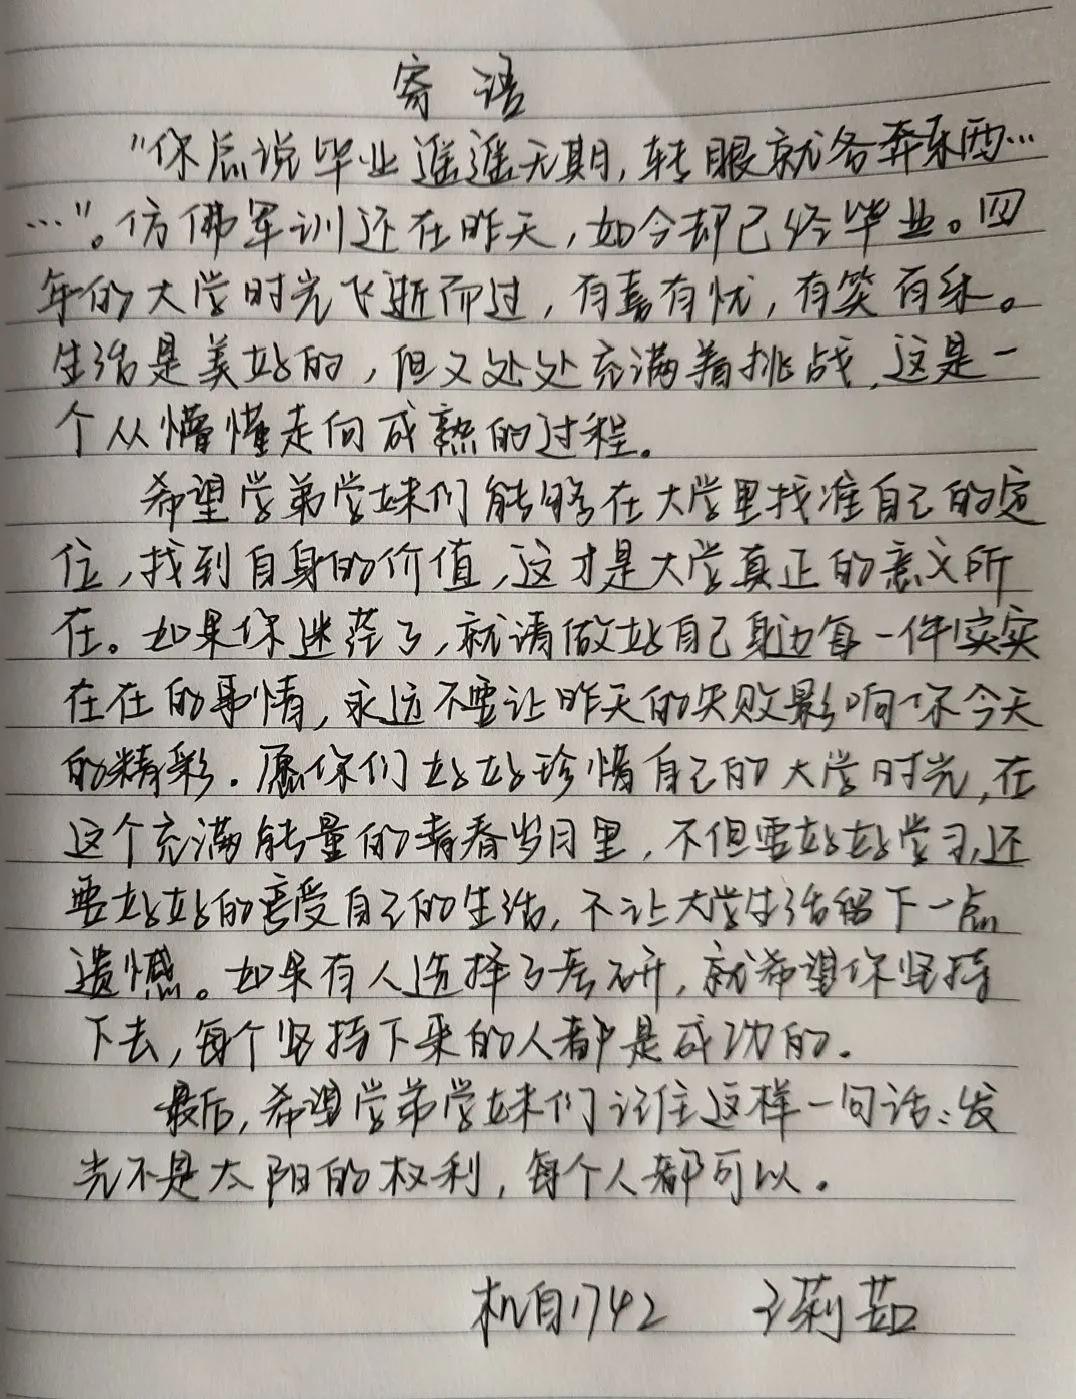 寄语
"你总说毕业遥遥无期，转眼就各奔东西…
…"。仿佛军训还在昨天，如今却已经毕业。四
年的大学时光飞逝而过，有喜有忧，有笑有泪。
生活是美好的，但又处处充满着挑战，这是一
个从懵懂走向成熟的过程。
希望学弟学妹们能够在大学里找准自己的定
位，找到自身的价值，这才是大学真正的意义所
在。如果你迷茫了，就请做好自己身边每一件实实
在在的事情，永远不要让昨天的失败影响你今天
的精彩。愿你们好好珍惜自己的大学时光，在
这个充满能量的青春岁月里，不但要好好学习，还
要好好的享受自己的生活，不让大学生活留下一点
遗憾。如果有人选择了考研，就希望你坚持
下去，每个坚持下来的人都是成功的。
最后，希望学弟学妹们记住这样一句话：发
光不是太阳的权利，每个人都可以。
机自1742 莉茹